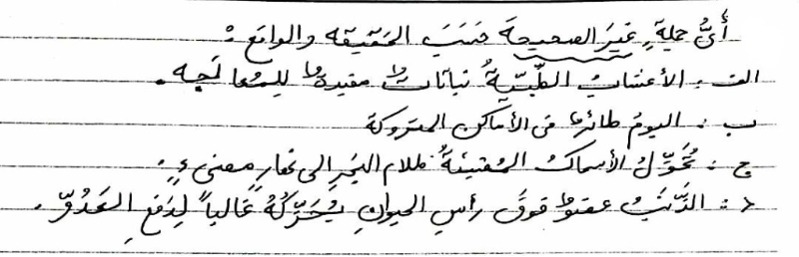 أَيُّ جملةٍ غَيرُ الصحیحةَ حَسَبَ الحَقیقه والواقع :
الف : الأعشابُ الطِّبّیةُ نَباتاتٌ مفیدةٌ لِلمُعالَجه.
ب : البومُ طائرٌ فی الأماکن المتروکة
ج : تُحَوِّلُ الأسماكُ المُضیئَةُ ظلام البَحرِ إلی نهارٍ مضیءٍ.
د : الذَّنَبُ عضوٌ فوقَ رأسِ الحیوانِ یُحَرِّکُهُ غالباً لِدَفعِ العَدُوِّ.